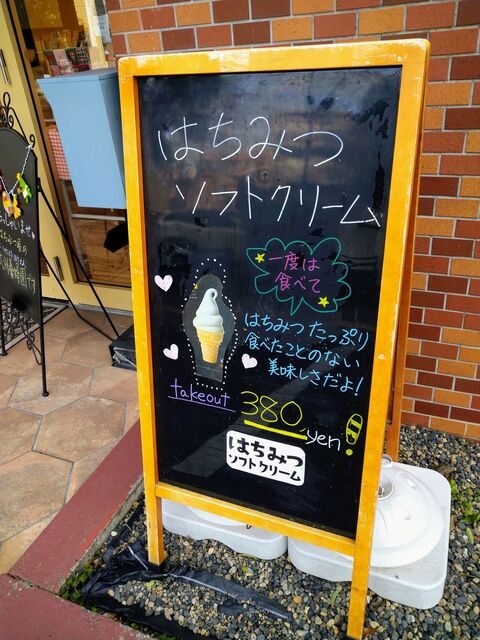 はちみつ
ソフトクリーム
一度は
食べて
はちみつ たっぷり
食べたことのない
美味しさだよ!
takeout
380 yen!
はちみつ
ソフトクリーム